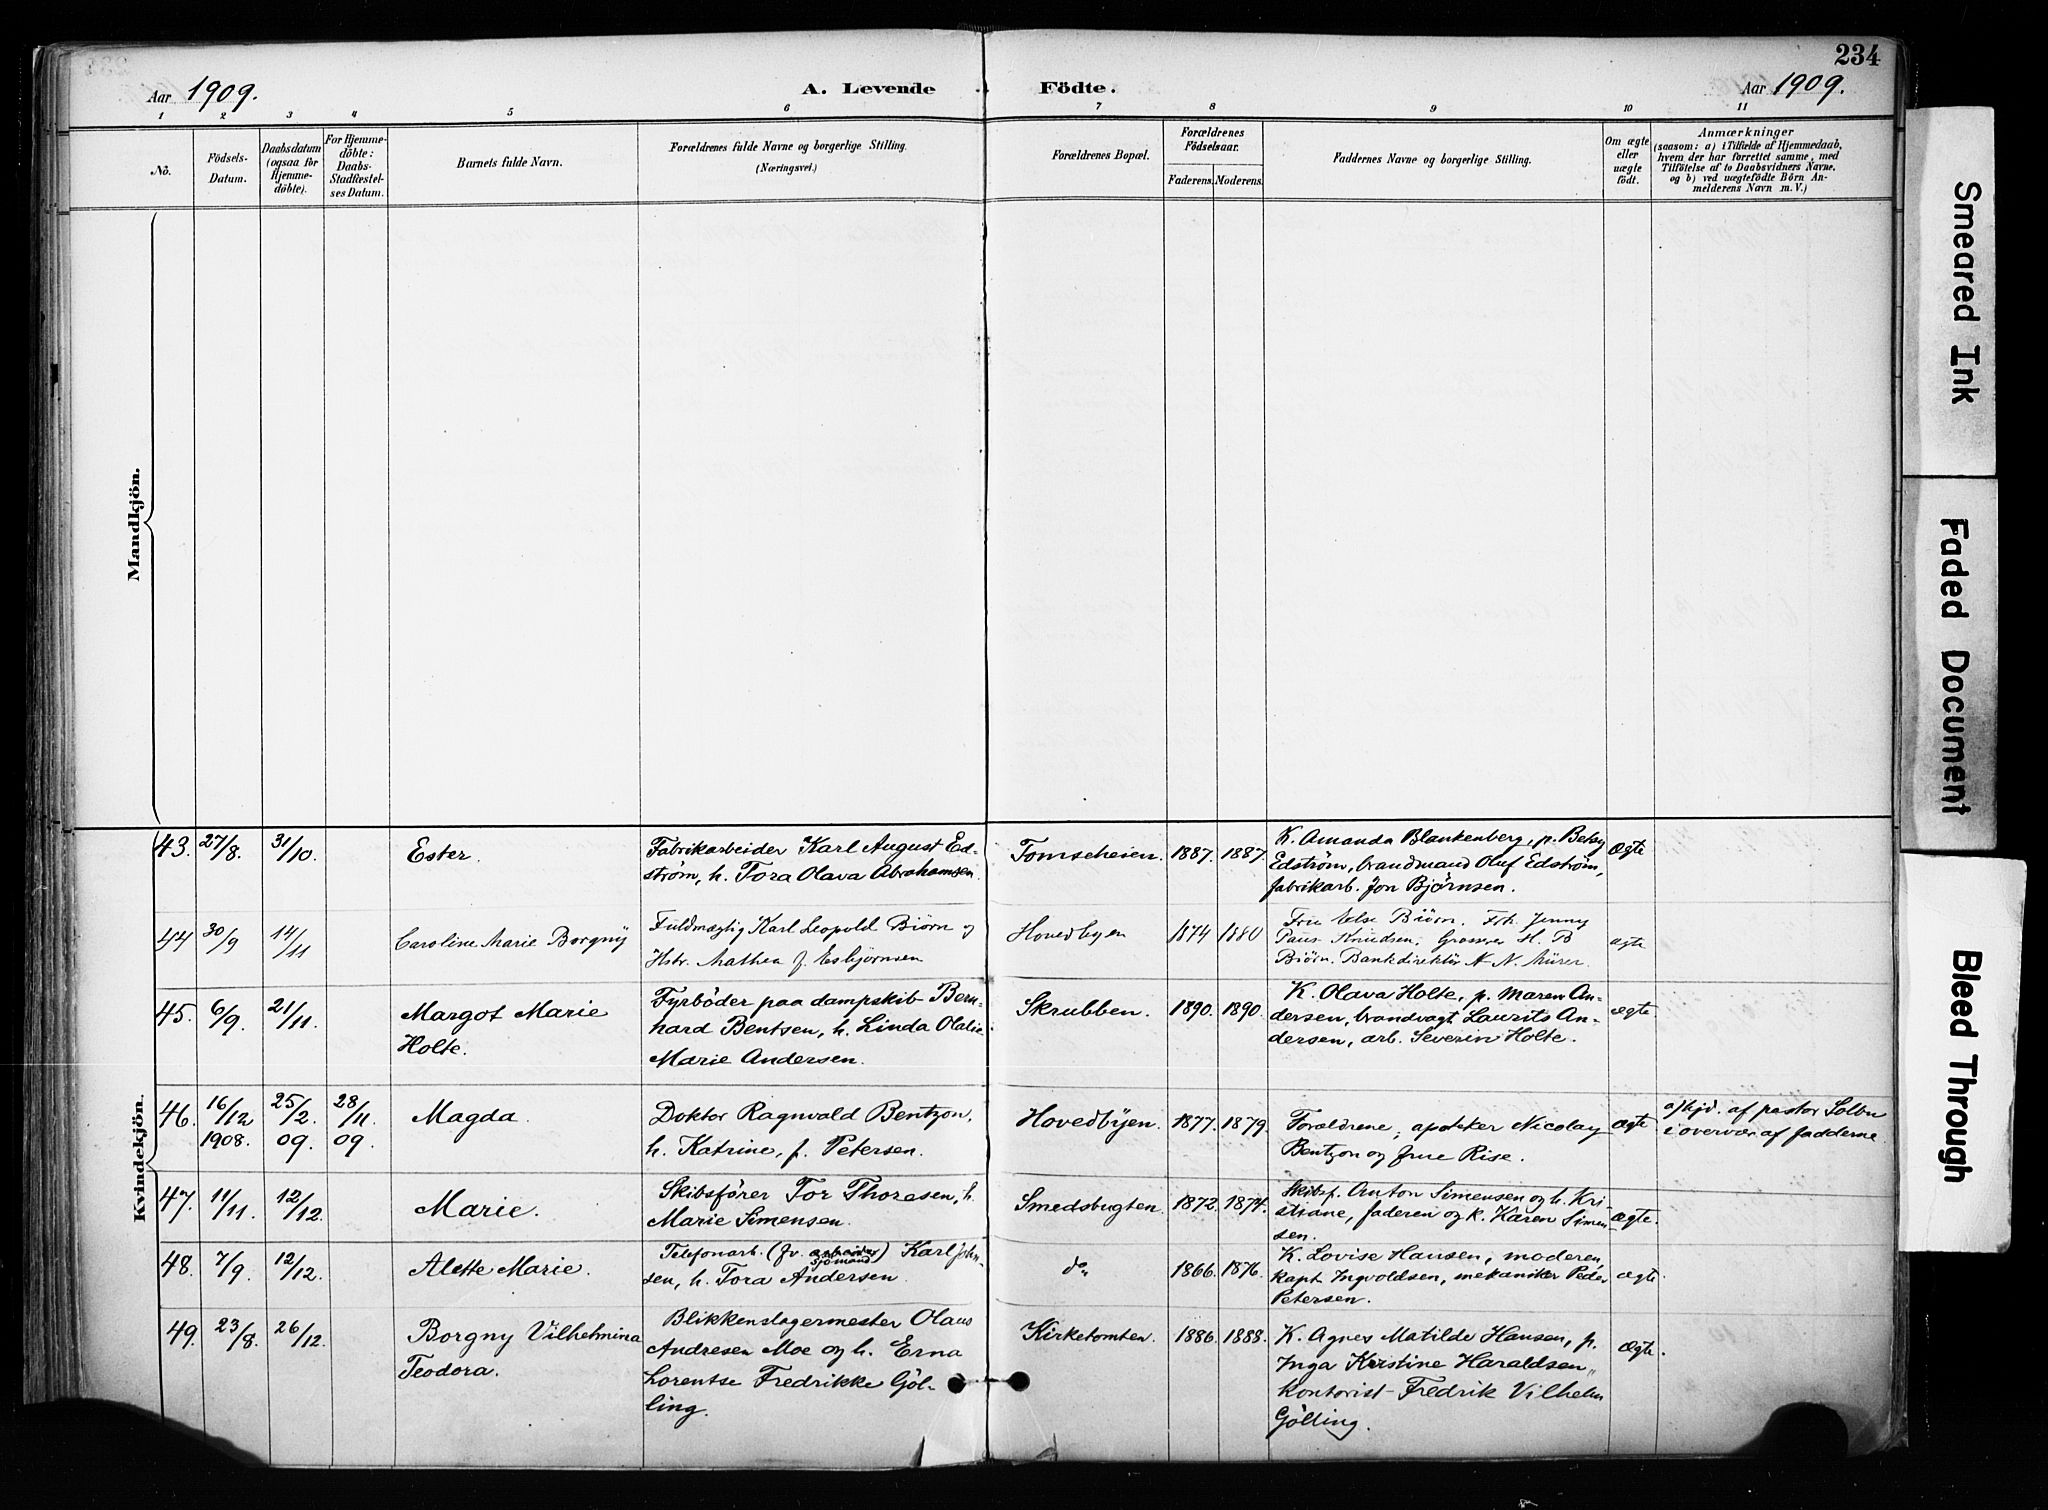 234
Aar 1909.
A. Levende Födte.
Aar 1909.
1 2 3 4 5 6 7 8 9 10 11
No.
Födsels-
Datum.
Daabsdatum
(ogsaa for
Hjemme-
döbte).
For Hjemme-
döbte:
Daabs-
Stadfæstel-
ses Datum.
Barnets fulde Navn.
Forældrenes fulde Navne og borgerlige Stilling.
(Næringsvei.)
Forældrenes Bopæl.
Forældrenes
Födselsaar.
Faderens. Moderens.
Faddernes Navne og borgerlige Stilling.
Om ægte
eller
uægte
födt.
Anmærkninger
(saasom: a) i Tilfælde af Hjemmedaab,
hvem der har forrettet samme, med
Tilföielse af to Daabsvidners Navne,
og b) ved uægtefödte Börn An-
melderens Navn m. V.)
Mandkjön.
Kvindekjön.
43. 27/8. 31/10. Ester.
Fabrikarbeider Karl August Ed-
strøm, h. Tora Olava Abrahamsen.
Tomseheien. 1887. 1887.
K. Amanda Blankenberg, p. Betsy
Edström, brandmand Oluf Edström,
fabrikarb. Jon Bjørnsen.
Ægte
44 30/9 14/11 Caroline Marie Borgny
Fuldmægtig Karl Leopold Biørn og
Hstr. Mathea f. Esbjørnsen
Hovedbyen 1874 1880
Fru Else Biørn. Frk. Jenny
Paus Knudsen, Grosserer H. B
Biørn. Bankdirektør N. N. Mürer.
ægte
45. 6/9. 21/11. Margot Marie
Holte.
Fyrböder paa dampskib Bern-
hard Bentsen, h. Linda Olalie
Marie Andersen.
Skrubben. 1890. 1890.
K. Olava Holte, p. Maren An-
dersen, brandvagt Laurits An-
dersen, arb. Severin Holte.
Ægte.
46. 16/12 1908. 25/2. 09. 28/11. 09. Magda.
Doktor Ragnvald Bentzon,
h. Katrine, f. Petersen.
Hovedbyen. 1877. 1879.
Forældrene, apoteker Nicolay
Bentzon og frue Rise.
Ægte
a/hjd. af pastor Solbu
i overvær af fadderne
47. 11/11. 12/12. Marie.
Skibsfører Tor Thoresen, h.
Marie Simensen.
Smedsbugten. 1872. 1874.
Skibsf. Anton Simensen og h. Kri-
stiane, faderen og k. Karen Simen-
sen.
Ægte.
48. 7/9. 12/12. Alette Marie.
Telefonarb. (fv. arbeider sjømand) Karl John-
sen, h. Tora Andersen.
do 1866. 1876.
K. Lovise Hansen, moderen,
kapt. Ingvoldsen, mekaniker Peder
Petersen.
Ægte.
49. 23/8. 26/12. Borgny Vilhelmina
Teodora.
Blikkenslagermester Olaus
Andresen Moe og h. Erna
Lorentse Fredrikke Göl-
ling.
Kirketomten. 1886. 1888.
K. Agnes Matilde Hansen, p.
Inga Kristine Haraldsen,
kontorist Fredrik Vilhelm
Gölling.
Ægte.
Smeared Ink
Faded Document
Bleed Through